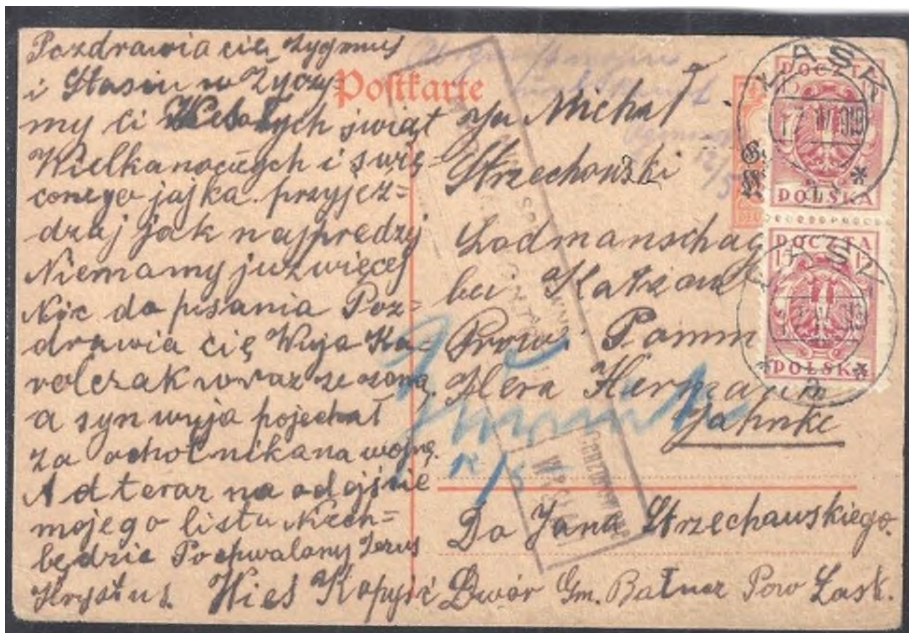 Pozdrawia cię Zygmuś
i Stasiu w Życzy
my ci Wesołych świąt
Wielkanocnych i świę-
conego jajka przyjeż-
dzaj jak najprędzij
Niemamy juz więcej
Nic do pisania Poz-
drawia cię Wuja Ka-
rolczak wraz ze zoną
a syn wuja pojechał
za ochotnika na wojnę.
A d teraz na odejście
mojego listu Niech-
będzie Pochwalony Jezus
Hrystus Wieś Kopyść
Postkarte
Michał
Strzechowski
Lodmanschag
bei Katzow
Prow. Pomm
Hera Hermann
Jahnke
Do Jana Strzechawskiego.
Dwór Gm. Bałucz Pow Łask.
ŁASK
POCZTA
POLSKA
ŁASK
POCZTA
15
POLSKA